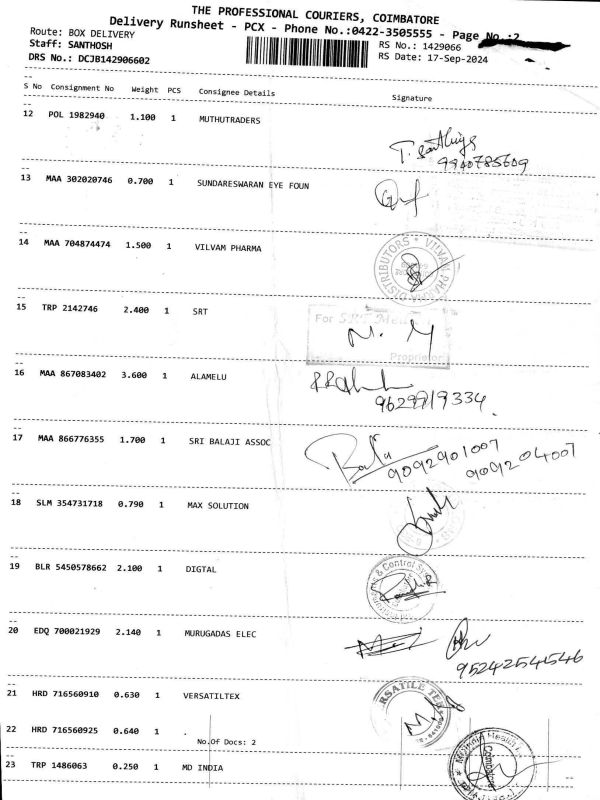 THE PROFESSIONAL COURIERS, COIMBATORE
Delivery Runsheet - PCX - Phone No.:0422-3505555 - Page No.:2
Route: BOX DELIVERY
Staff: SANTHOSH
RS No.: 1429066
DRS No.: DCJB142906602
RS Date: 17-Sep-2024
S No Consignment No Weight PCS Consignee Details Signature
12 POL 1982940 1.100 1 MUTHUTRADERS
9940785609
13 MAA 302020746 0.700 1 SUNDARESWARAN EYE FOUN
14 MAA 704874474 1.500 1 VILVAM PHARMA
DISTRIBUTORS * VILVAM PHARMA
15 TRP 2142746 2.400 1 SRT
For SRT
N. M
Proprietor
16 MAA 867083402 3.600 1 ALAMELU
9629919334
17 MAA 866776355 1.700 1 SRI BALAJI ASSOC
9092901007
909204007
18 SLM 354731718 0.790 1 MAX SOLUTION
19 BLR 5450578662 2.100 1 DIGTAL
& Control
20 EDQ 700021929 2.140 1 MURUGADAS ELEC
95242541546
21 HRD 716560910 0.630 1 VERSATILTEX
22 HRD 716560925 0.640 1 .
No.Of Docs: 2
23 TRP 1486063 0.250 1 MD INDIA